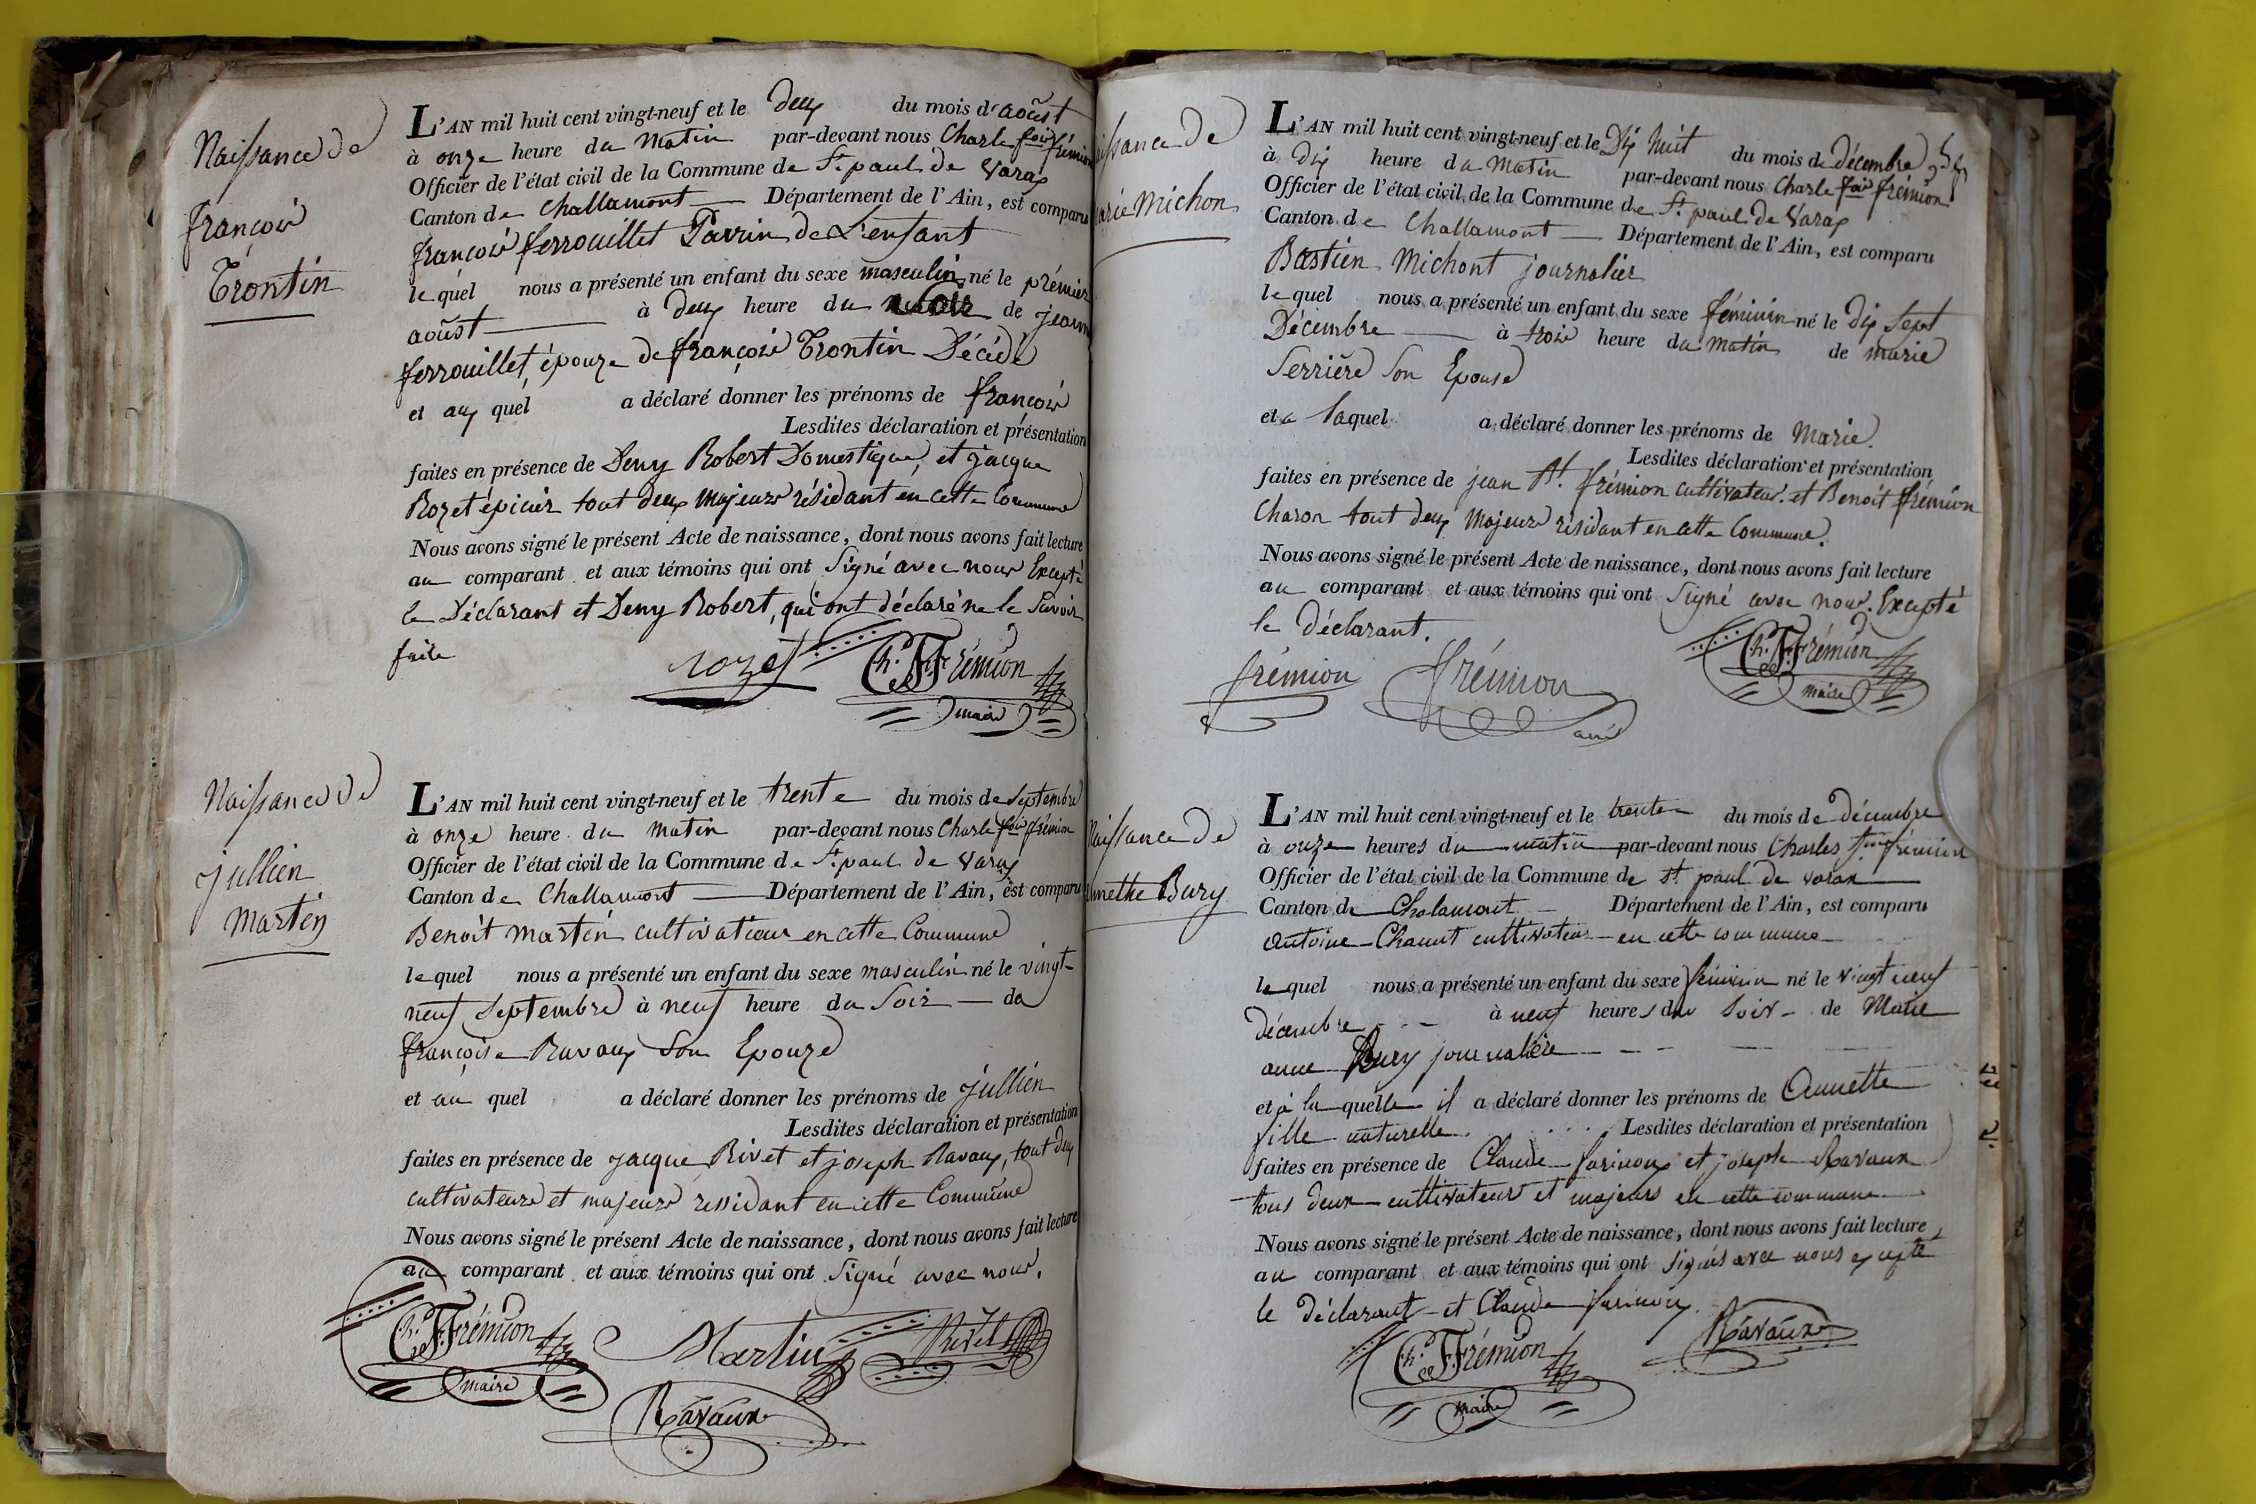 Naissance de
françois
Trontin
L'AN mil huit cent vingt-neuf et le deux du mois d'août
à onze heure du matin par-devant nous Charle fois frémion
Officier de l'état civil de la Commune de St paul de Varax
Canton de Challamont Département de l'Ain, est comparu
françois ferrouillet Parrin de L'enfant
le quel nous a présenté un enfant du sexe masculin né le prémier
août à deux heure du soir de jeanne
ferrouillet, épouze de françois Trontin Décédé
et aux quel a déclaré donner les prénoms de françois
Lesdites déclaration et présentation
faites en présence de Deny Robert Domestique, et jacque
Rozet épicier tout deux majeurs résidant en cette Commune
Nous avons signé le présent Acte de naissance, dont nous avons fait lecture
au comparant et aux témoins qui ont Signé avec nous Excepté
le Déclarant et Deny Robert, qui ont déclaré ne le Savoir
faire
rozet Ch. F. Frémion
maire
Naissance de
jullien
Martin
L'AN mil huit cent vingt-neuf et le trente du mois de septembre
à onze heure du matin par-devant nous Charle fois frémion
Officier de l'état civil de la Commune de St paul de Varax
Canton de Challamont Département de l'Ain, est comparu
Benoit Martin cultivateur en cette Commune
le quel nous a présenté un enfant du sexe masculin né le vingt-
neuf Septembre à neuf heure du Soir de
françoise Ravaux Son Epouze
et au quel a déclaré donner les prénoms de jullien
Lesdites déclaration et présentation
faites en présence de jacque Rivet et joseph Ravaux, tout deux
cultivateurs et majeurs ressidant en cette Commune
Nous avons signé le présent Acte de naissance, dont nous avons fait lecture
au comparant et aux témoins qui ont Signé avec nous.
Ch. F. Frémion Martin Rivet
maire
Ravaux
Naissance de
Marie Michon
L'AN mil huit cent vingt-neuf et le Dix huit du mois de décembre
à dix heure du Matin par-devant nous Charle fois frémion
Officier de l'état civil de la Commune de St paul de Varax
Canton de Challamont Département de l'Ain, est comparu
Bastien Michont journalier
le quel nous a présenté un enfant du sexe féminin né le dix Sept
Décembre à trois heure du matin de marie
Serrière Son Epouse
et a laquel a déclaré donner les prénoms de Marie.
Lesdites déclaration et présentation
faites en présence de jean Bt. frémion cultivateur. et Benoit frémion
Charon tout deux Majeurs résidant en cette Commune.
Nous avons signé le présent Acte de naissance, dont nous avons fait lecture
au comparant et aux témoins qui ont Signé avec nous. Excepté
le déclarant.
frémion frémion Ch. F. Frémion
maire
Naissance de
Annethe Bury
L'AN mil huit cent vingt-neuf et le trente du mois de décembre
à onze heures du matin par-devant nous Charles frémion
Officier de l'état civil de la Commune de st paul de varax
Canton de Chalamont Département de l'Ain, est comparu
Antoine Chanut cultivateur en cette commune
le quel nous a présenté un enfant du sexe féminin né le vingt neuf
décembre à neuf heures du soir de Marie
anne Bury journalière
et à la quelle il a déclaré donner les prénoms de Annette
fille naturelle. Lesdites déclaration et présentation
faites en présence de Claude et joseph Ravaux
tous deux cultivateurs et majeurs en cette commune
Nous avons signé le présent Acte de naissance, dont nous avons fait lecture
au comparant et aux témoins qui ont signés avec nous excepté
le déclarant et Claude
Ravaux
Ch. F. Frémion
maire